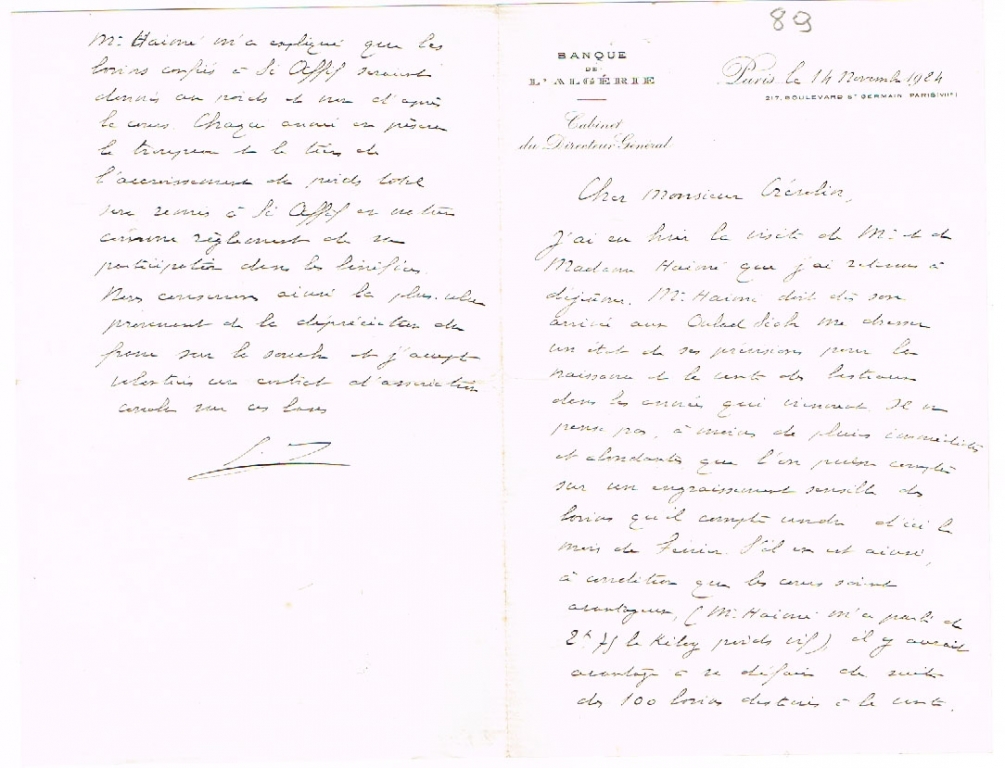 89
BANQUE
DE
L'ALGÉRIE
Cabinet
du Directeur Général
Paris, le 14 Novembre 1924
217, BOULEVARD ST GERMAIN, PARIS (VIIe)
Cher Monsieur
J'ai eu hier la visite de Mr. et de
Madame Haimé que j'ai retenus à
déjeuner. Mr. Haimé doit dès son
arrivée aux Oulad me dresser
un état de ses prévisions pour la
naissance et la vente des bestiaux
dans les années qui viennent. Il ne
pense pas, à moins de pluies immédiates
et abondantes que l'on puisse compter
sur un engraissement sensible des
bovins qu'il compte vendre d'ici le
mois de Février. S'il en est ainsi,
à condition que les cours soient
avantageux, (Mr. Haimé m'a parlé de
2f 75 le Kilog poids vif), il y aurait
avantage à se défaire de suite
des 100 bovins destinés à la vente.
Mr. Haimé m'a expliqué que les
bovins confiés à Si Affif seraient
donnés au poids et non d'après
le cours. Chaque année on pèsera
le troupeau et le tiers de
l'accroissement de poids total
sera remis à Si Affif en
comme règlement de sa
participation dans les bénéfices.
Nous conservons ainsi la plus-value
provenant de la dépréciation du
franc sur la souche et j'accepte
volontiers un contrat d'association
sur ces bases